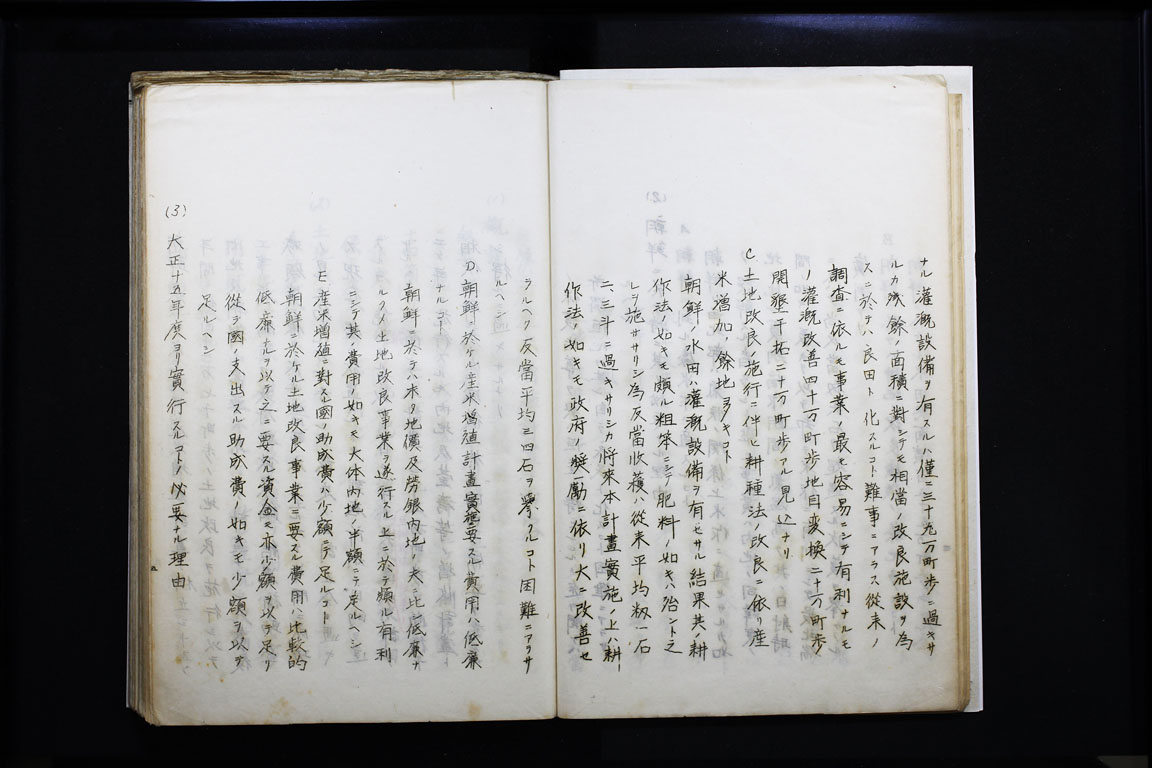 ナル灌漑設備ヲ有スルハ僅ニ三十九万町歩ニ過キサ
ルカ残餘ノ面積ニ対シテモ相當ノ改良施設ヲ為
スニ於テハ良田ト化スルコト難事ニアラス従来ノ
調査ニ依ルモ事業ノ最モ容易ニシテ有利ナルモ
ノ灌漑改善四十万町歩地目変換二十万町歩
開墾干拓二十万町歩アル見込ナリ
C.土地改良ノ施行ニ伴ヒ耕種法ノ改良ニ依リ産
米増加ノ餘地多キコト
朝鮮ノ水田ハ灌漑設備ヲ有セサル結果其ノ耕
作法ノ如キモ頗ル粗笨ニシテ肥料ノ如キハ殆ント之
レヲ施ササリシ為反當收穫ハ従来平均籾一石
二、三斗ニ過キサリシカ将来本計畫實施ノ上ハ耕
作法ノ如キモ政府ノ奨勵ニ依リ大ニ改善セ
ラルヘク反當平均三四石ヲ擧クルコト困難ニアラサ
ルヘシ
D.朝鮮ニ於ケル産米増殖計畫實施ニ要スル費用ハ低廉
ナルコト
朝鮮ニ於テハ未タ地價及労銀内地ノ夫ニ比シ低廉ナ
ルタメ土地改良事業ヲ遂行スル上ニ於テ頗ル有利
ニシテ其ノ費用ノ如キモ大体内地ノ半額ニテ足ルヘシ
E.産米増殖ニ對スル國ノ助成費ハ少額ニテ足ルコト
朝鮮ニ於ケル土地改良事業ニ要スル費用ハ比較的
低廉ナルヲ以テ之ニ要スル資金モ亦少額ヲ以テ足リ
従テ國ノ支出スル助成費ノ如キモ少額ヲ以テ
足ルヘシ
(3)大正十五年度ヨリ實行スルコトノ必要ナル理由